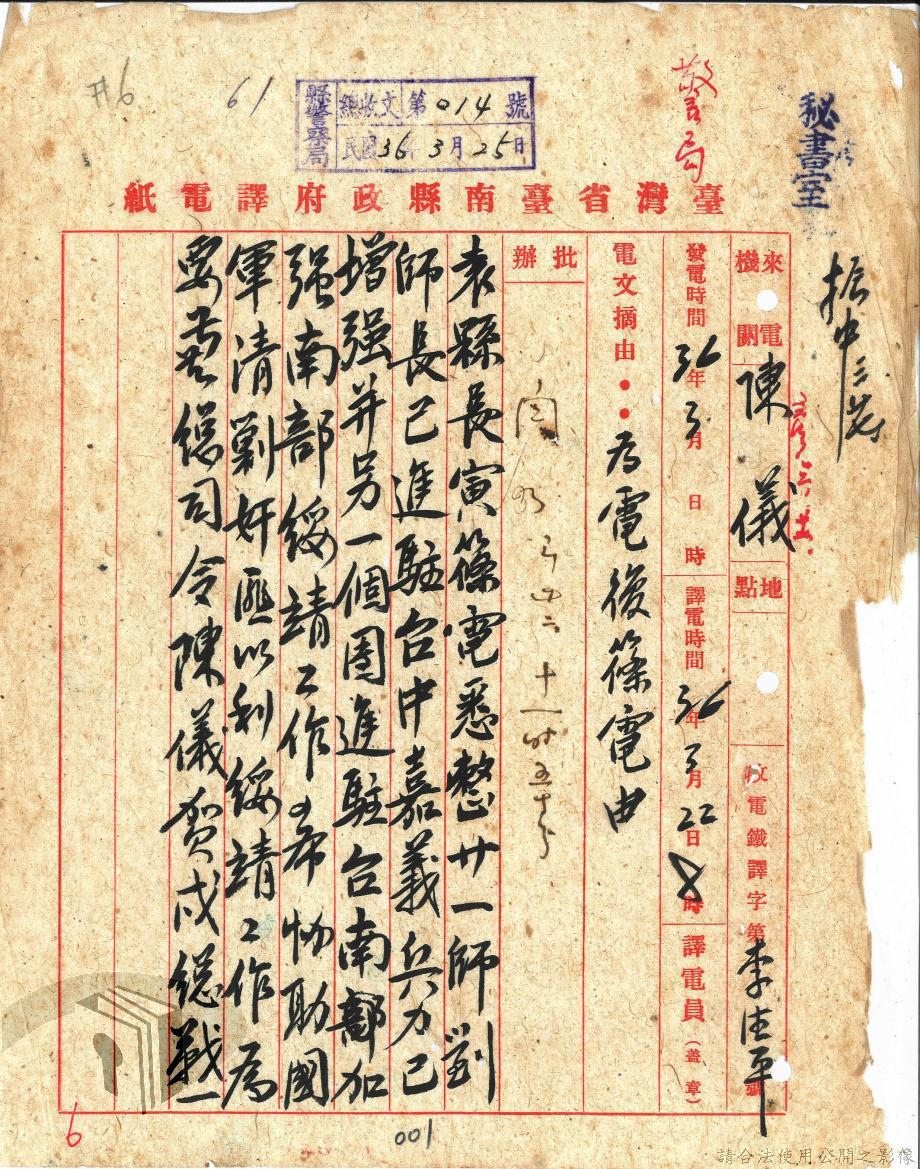 #6
61
縣警察局
總收文第014號
民國36年3月25日
警局
秘書室
臺灣省臺南縣政府譯電紙
來電機關
陳儀
地點
收電鐵譯字第 號
李佳平
發電時間36年3月 日 時
譯電時間36年3月22日8時
譯電員(蓋章)
電文摘由:為電復篠電由
批辦
十一時五十分
袁縣長寅篠電悉整廿一師劉
師長已進駐台中嘉義兵力已
增強并另一個團進駐台南部加
強南部綏靖工作希協助國
軍清剿奸匪以利綏靖工作為
要兼總司令陳儀寅戌總戰一
6
001
請合法使用公開之影像